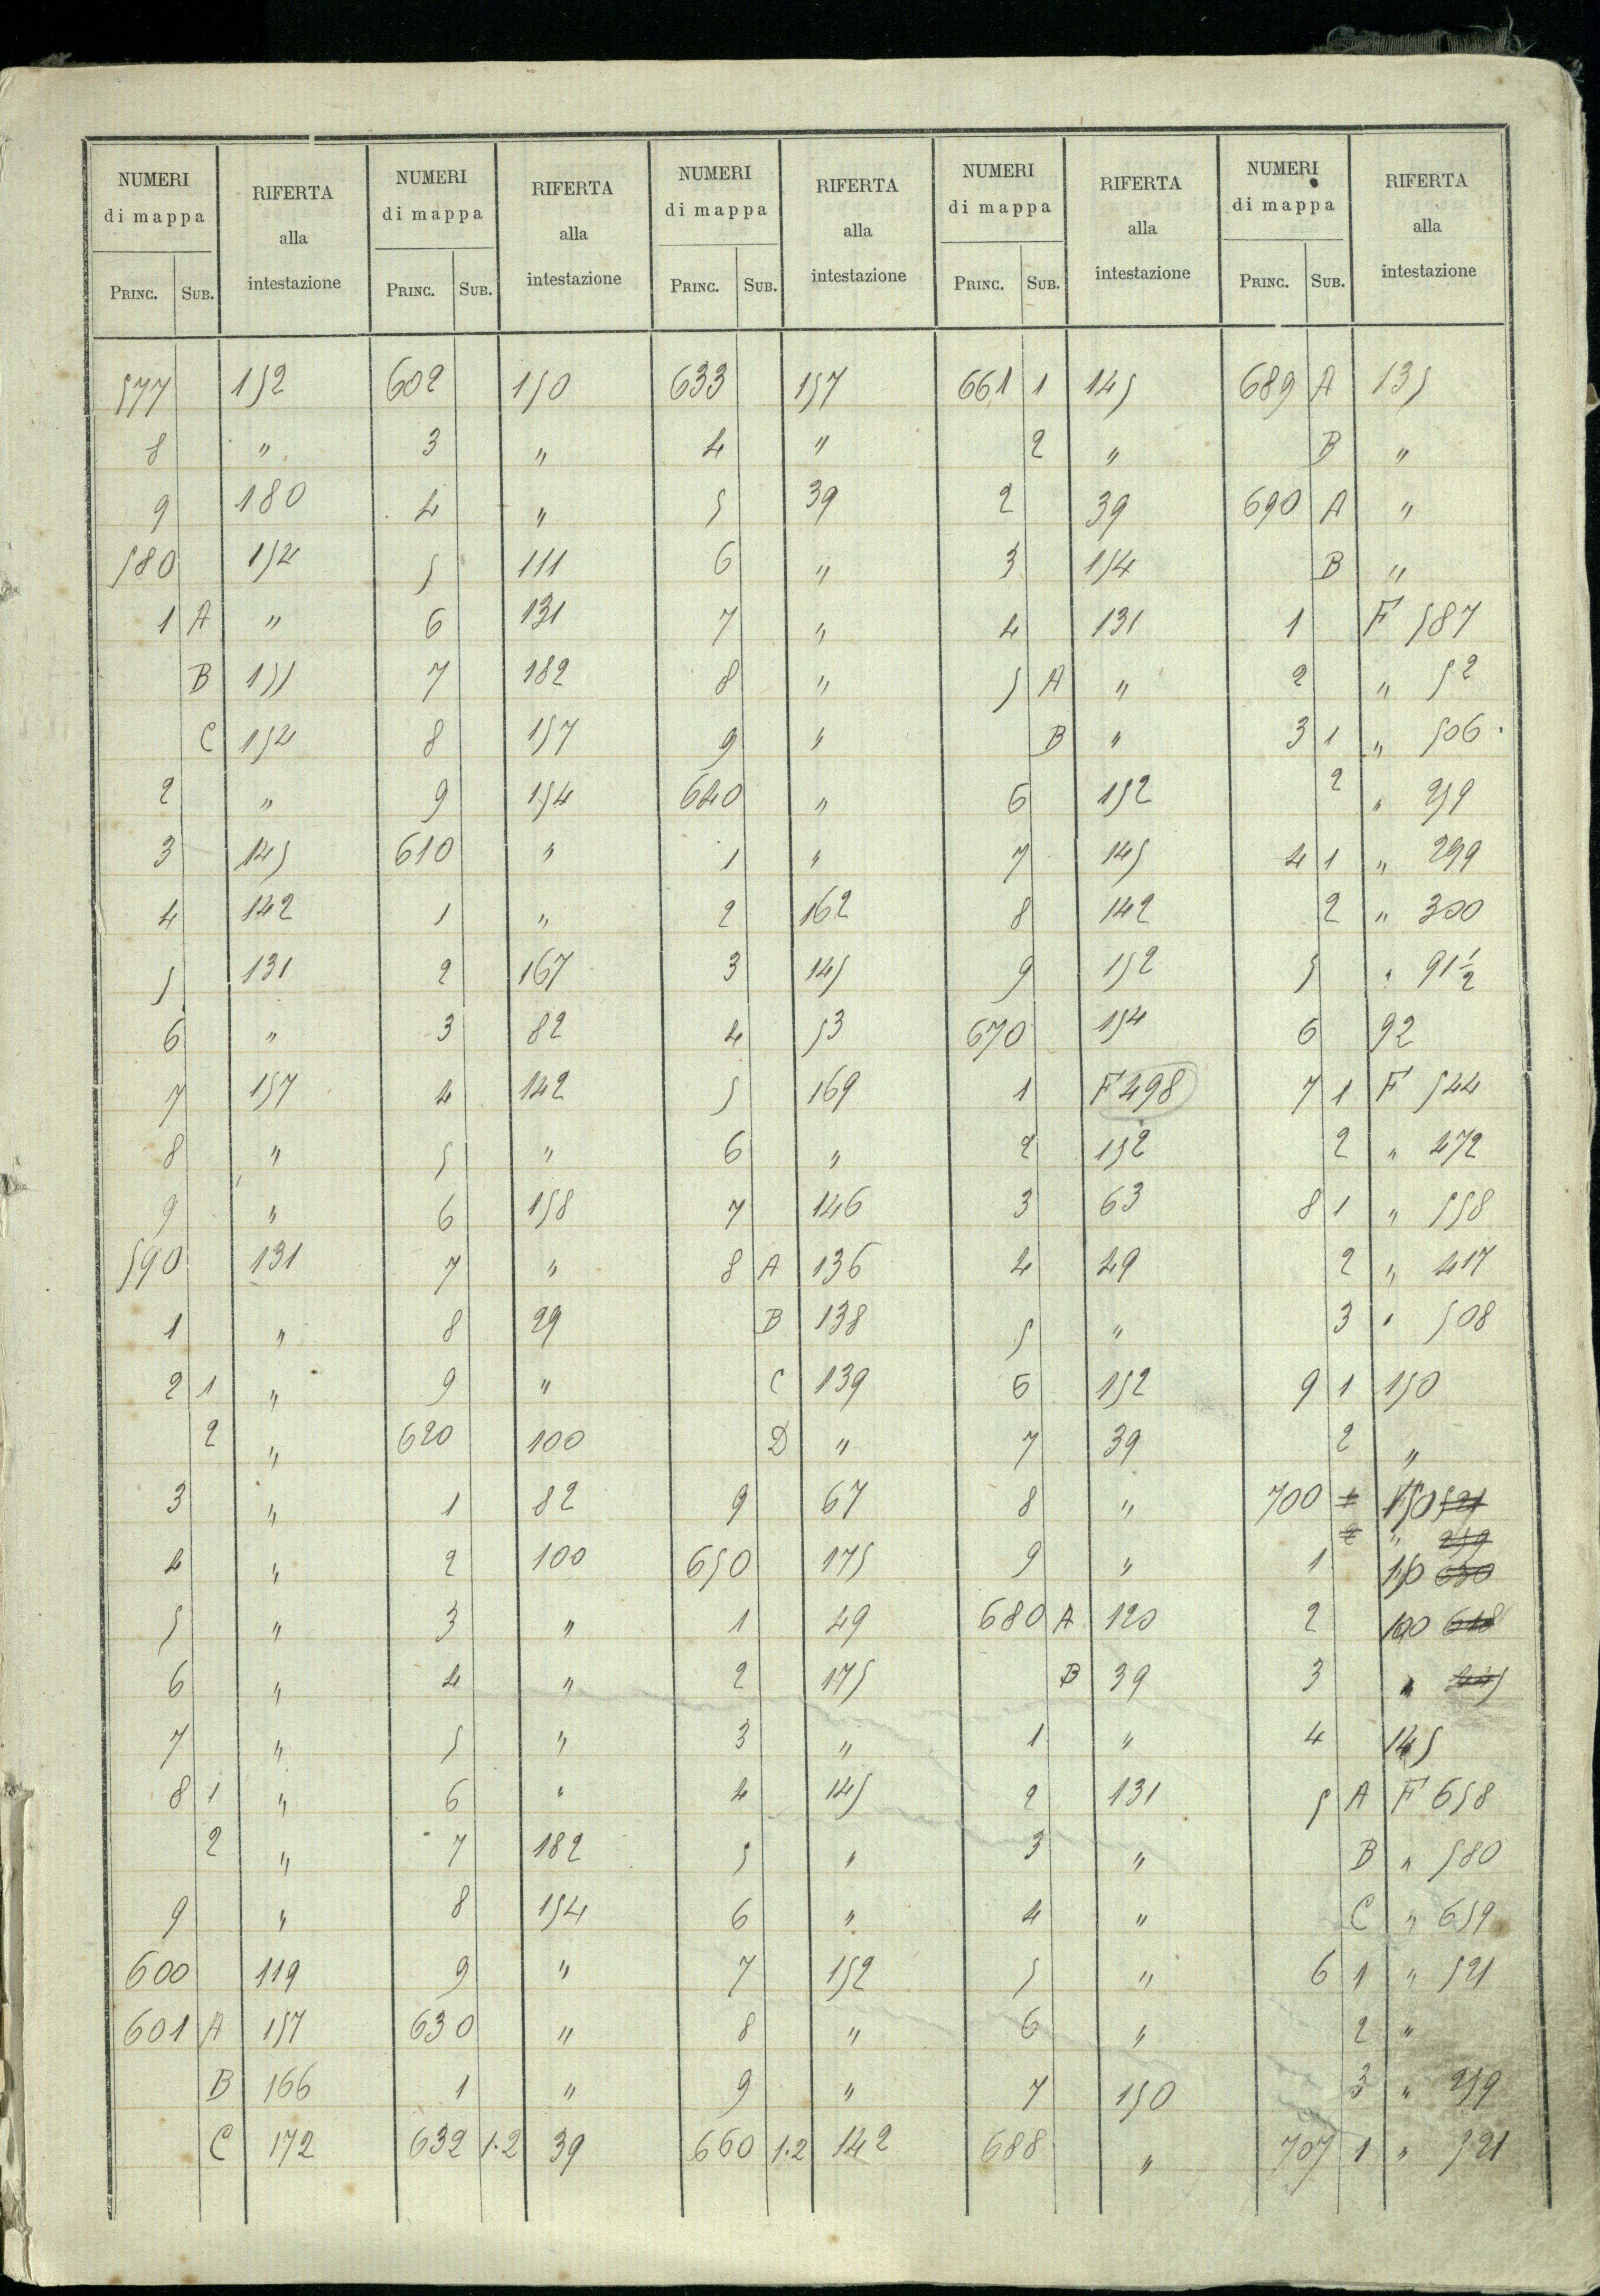 NUMERI di mappa RIFERTA alla intestazione NUMERI di mappa RIFERTA alla intestazione NUMERI di mappa RIFERTA alla intestazione NUMERI di mappa RIFERTA alla intestazione NUMERI di mappa RIFERTA alla intestazione
PRINC. SUB. PRINC. SUB. PRINC. SUB. PRINC. SUB. PRINC. SUB.
577 152 602 150 633 157 661 1 145 689 A 135
8 " 3 " 4 " 2 " B "
9 180 4 " 5 39 2 39 690 A "
580 154 5 111 6 " 3 154 B "
1 A " 6 131 7 " 4 131 1 F 587
B 155 7 182 8 " 5 A " 2 " 52
C 154 8 157 9 " B " 3 1 " 506
2 " 9 154 640 " 6 152 2 " 259
3 145 610 " 1 " 7 145 4 1 " 299
4 142 1 " 2 162 8 142 2 " 300
5 131 2 167 3 145 9 152 5 " 91½
6 " 3 82 4 53 670 154 6 92
7 157 4 142 5 169 1 F 498 7 1 F 544
8 " 5 " 6 " 2 152 2 " 472
9 " 6 158 7 146 3 63 8 1 " 558
590 131 7 " 8 A 136 4 49 2 " 417
1 " 8 29 B 138 5 " 3 " 508
2 1 " 9 " C 139 6 152 9 1 150
2 " 620 100 D " 7 39 2 "
3 " 1 82 9 67 8 " 700 1 150 521
2 " 259
4 " 2 100 650 175 9 " 1 150 630
5 " 3 " 1 49 680 A 120 2 100 618
6 " 4 " 2 175 B 39 3 "
7 " 5 " 3 " 1 " 4 145
8 1 " 6 " 4 145 2 131 5 A F 658
2 " 7 182 5 " 3 " B " 580
9 " 8 154 6 " 4 " C " 659
600 119 9 " 7 152 5 " 6 1 " 521
601 A 157 630 " 8 " 6 " 2 "
B 166 1 " 9 " 7 150 3 " 259
C 172 632 1.2 39 660 1.2 142 688 " 707 1 " 521